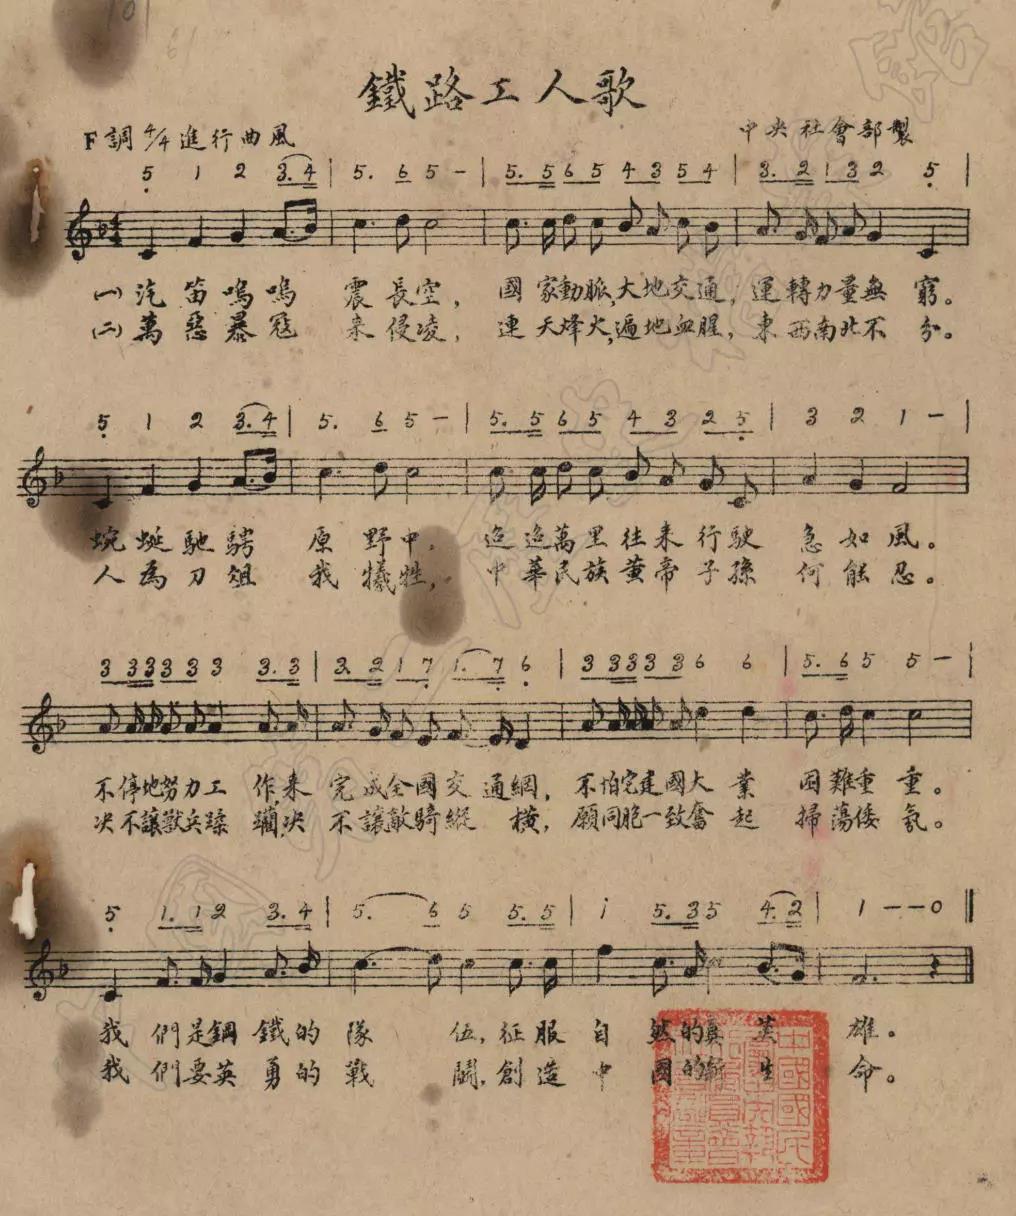 鐵路工人歌
F調 4/4 進行曲風
中央社會部製
5 1 2 3.4 | 5. 6 5 - | 5.5 6 5 4 3 5 4 | 3.2 1 3 2 5 |
(一)汽笛嗚嗚 震長空，國家動脈，大地交通，運轉力量無窮。
(二)萬惡暴寇 来侵凌，連天烽火，遍地血腥，東西南北不分。
5 1 2 3.4 | 5. 6 5 - | 5.5 6 5 4 3 2 5 | 3 2 1 - |
蜿蜒馳騁 原野中，迢迢萬里往来行駛 急如風。
人為刀俎 我犧牲，中華民族黄帝子孫 何能忍。
3 3 3 3 3 3 3.3 | 3.2 1 7 1.7 6 | 3 3 3 3 3 6 6 | 5.6 5 5 - |
不停地努力工作，来完成全國交通網，不怕它建國大業 困難重重。
决不讓獸兵蹂躪，决不讓敵騎縱橫，願同胞一致奮起 掃蕩倭氛。
5 1.1 2 3.4 | 5. 6 5 5.5 | i 5.3 5 4.2 | 1 - - 0 ‖
我們是鋼鐵的隊伍，征服自然的真英雄。
我們要英勇的戰鬪，創造中國的新生命。